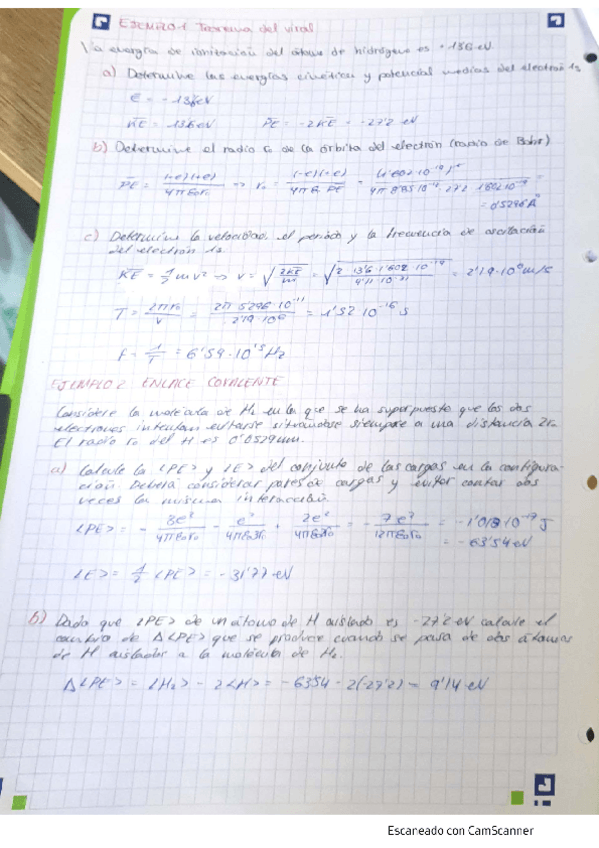 EJEMPLO 1 Teorema del virial
La energía de ionización del átomo de hidrógeno es +13'6 eV
a) Determine las energías cinética y potencial medias del electrón 1s
E = -13'6 eV
KE = 13'6 eV PE = -2KE = -27'2 eV
b) Determine el radio r₀ de la órbita del electrón (radio de Bohr)
PE = (-e)(+e) / 4πε₀r₀ => r₀ = (-e)(+e) / 4πε₀ PE = (1'602·10⁻¹⁹)² / 4π 8'85·10⁻¹² 27'2 1'602·10⁻¹⁹ =
= 0'5296 Å
c) Determine la velocidad, el periodo y la frecuencia de oscilación
del electrón 1s.
KE = 1/2 m v² => v = √(2KE/m) = √(2·13'6·1'602·10⁻¹⁹ / 9'11·10⁻³¹) = 2'19·10⁶ m/s
T = 2πr₀ / v = 2π 5'296·10⁻¹¹ / 2'19·10⁶ = 1'52·10⁻¹⁶ s
f = 1/T = 6'59·10¹⁵ Hz
EJEMPLO 2 ENLACE COVALENTE
Considere la molécula de H₂ en la que se ha superpuesto que los dos
electrones intentan evitarse situándose siempre a una distancia 2r₀
El radio r₀ del H es 0'0529 nm.
a) Calcule la <PE> y <E> del conjunto de las cargas en la configura-
ción. Deberá considerar pares de cargas y evitar contar dos
veces la misma interacción.
<PE> = - 8e² / 4πε₀r₀ - e² / 4πε₀3r₀ + 2e² / 4πε₀r₀ = - 7e² / 12πε₀r₀ = -1'018·10⁻¹⁷ J
= -63'54 eV
<E> = 1/2 <PE> = -31'77 eV
b) Dado que <PE> de un átomo de H aislado es -27'2 eV calcule el
cambio de Δ<PE> que se produce cuando se pasa de dos átomos
de H aislados a la molécula de H₂.
Δ<PE> = <H₂> - 2<H> = -63'54 - 2(-27'2) = 9'14 eV
Escaneado con CamScanner